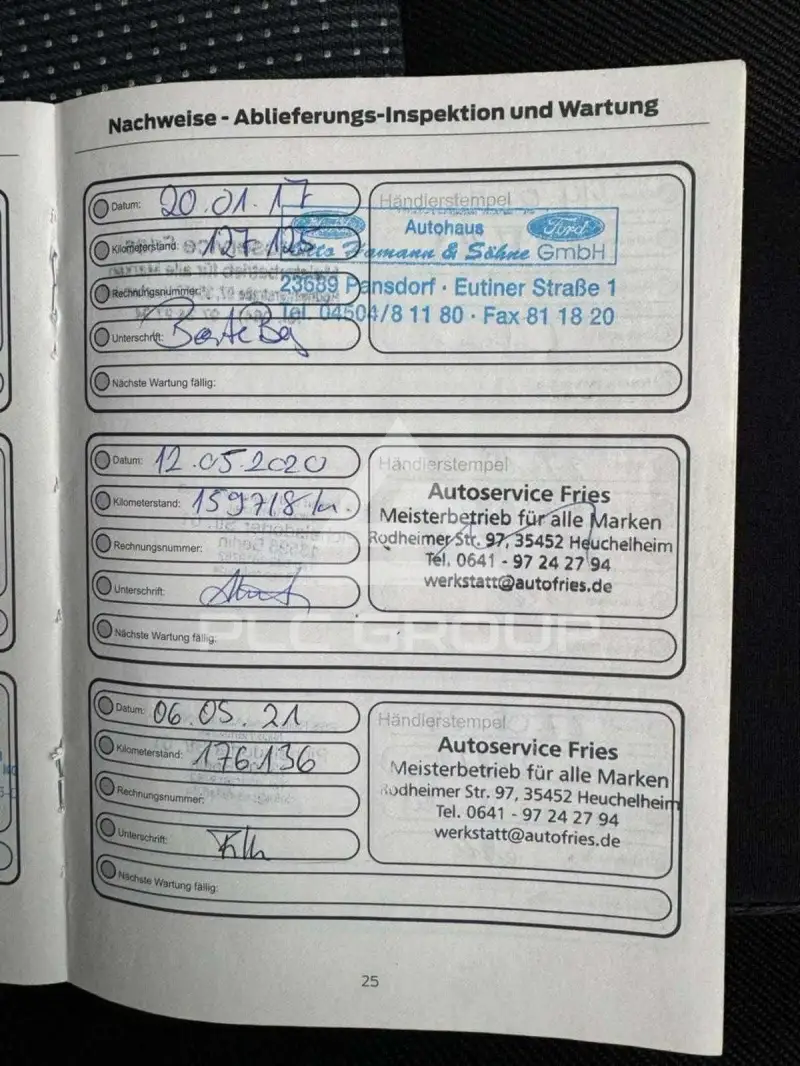 Nachweise - Ablieferungs-Inspektion und Wartung
Datum: 20.01.17
Kilometerstand: 127.125
Rechnungsnummer:
Unterschrift:
Nächste Wartung fällig:
Händlerstempel
Autohaus Ford
Hamann & Söhne GmbH
23689 Pansdorf · Eutiner Straße 1
Tel. 04504/8 11 80 · Fax 81 18 20
Datum: 12.05.2020
Kilometerstand: 159718 km.
Rechnungsnummer:
Unterschrift:
Nächste Wartung fällig:
Händlerstempel
Autoservice Fries
Meisterbetrieb für alle Marken
Rodheimer Str. 97, 35452 Heuchelheim
Tel. 0641 - 97 24 27 94
werkstatt@autofries.de
PLC GROUP
Datum: 06.05.21
Kilometerstand: 176.136
Rechnungsnummer:
Unterschrift:
Nächste Wartung fällig:
Händlerstempel
Autoservice Fries
Meisterbetrieb für alle Marken
Rodheimer Str. 97, 35452 Heuchelheim
Tel. 0641 - 97 24 27 94
werkstatt@autofries.de
25